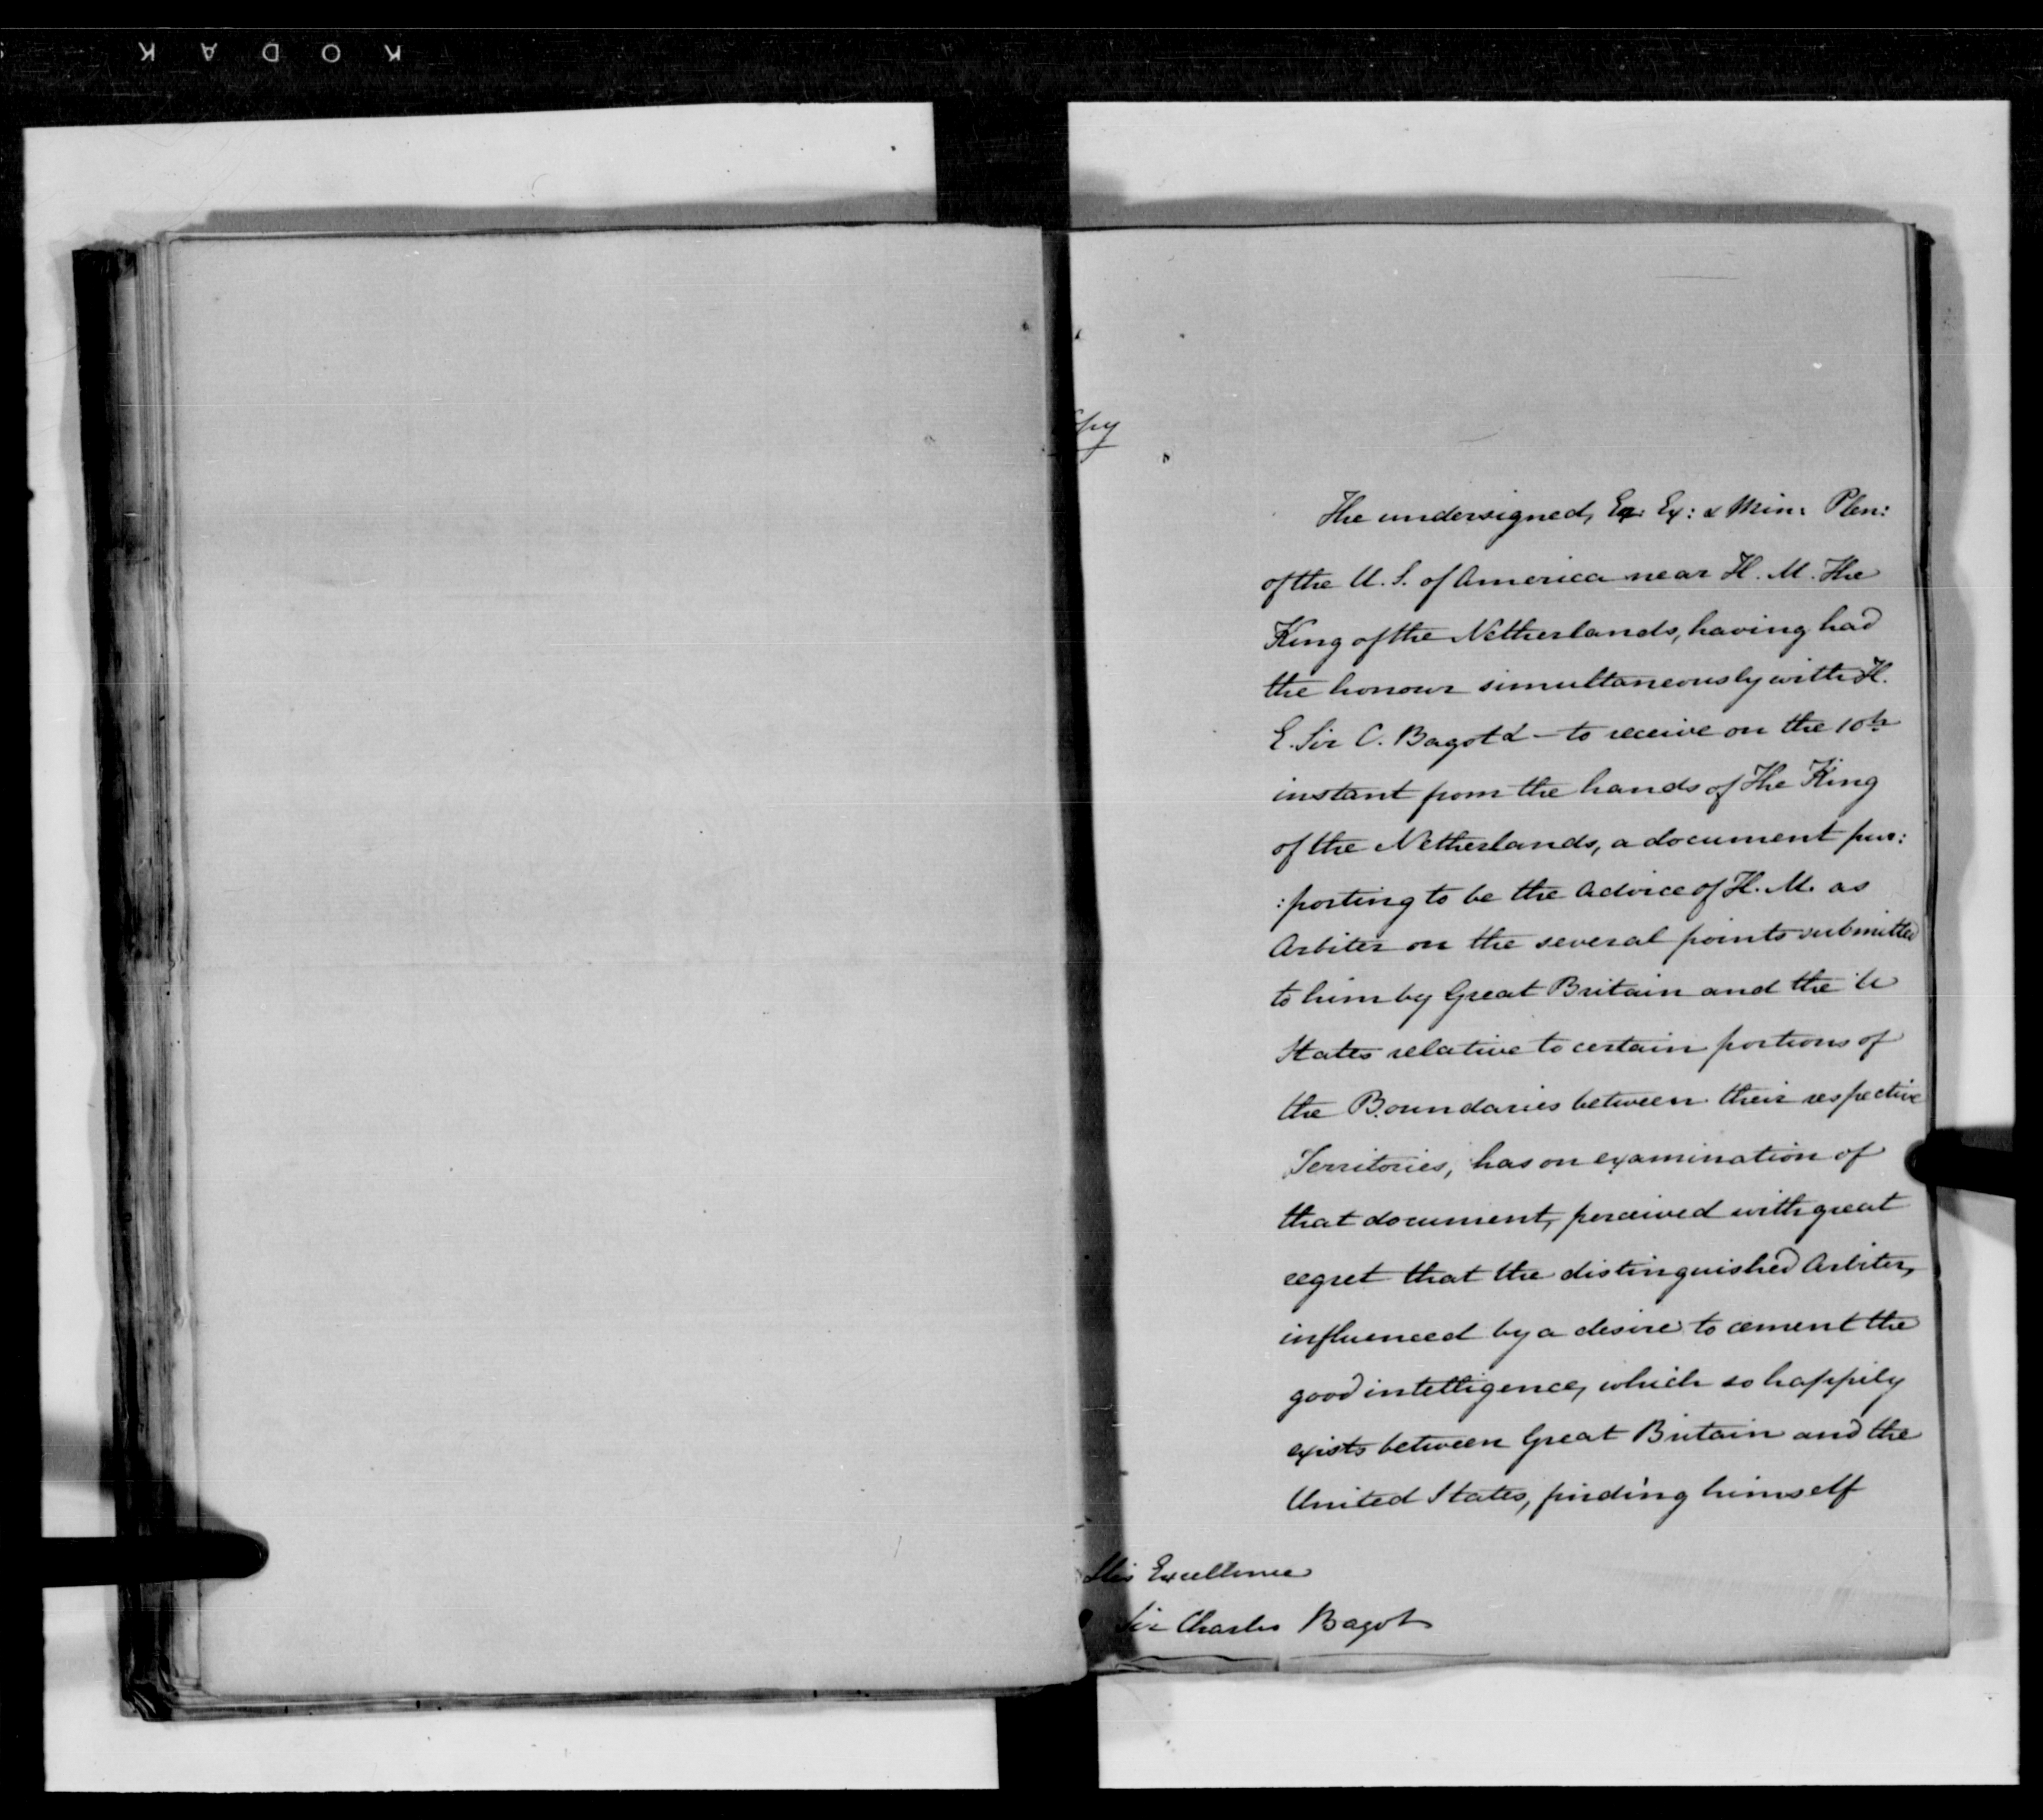 KODAK
The undersigned, Ex: Ex: & Min: Plen:
of the U. S. of America near H. M. The
King of the Netherlands, having had
the honour simultaneously with H.
E. Sir C. Bagot & – to receive on the 10th
instant from the hands of The King
of the Netherlands, a document pur:
:porting to be the advice of H. M. as
Arbiter on the several points submitted
to him by Great Britain and the U
States relative to certain portions of
the Boundaries between their respective
Territories, has on examination of
that document, perceived with great
regret that the distinguished Arbiter,
influenced by a desire to cement the
good intelligence, which so happily
exists between Great Britain and the
United States, finding himself
His Excellence
Sir Charles Bagot